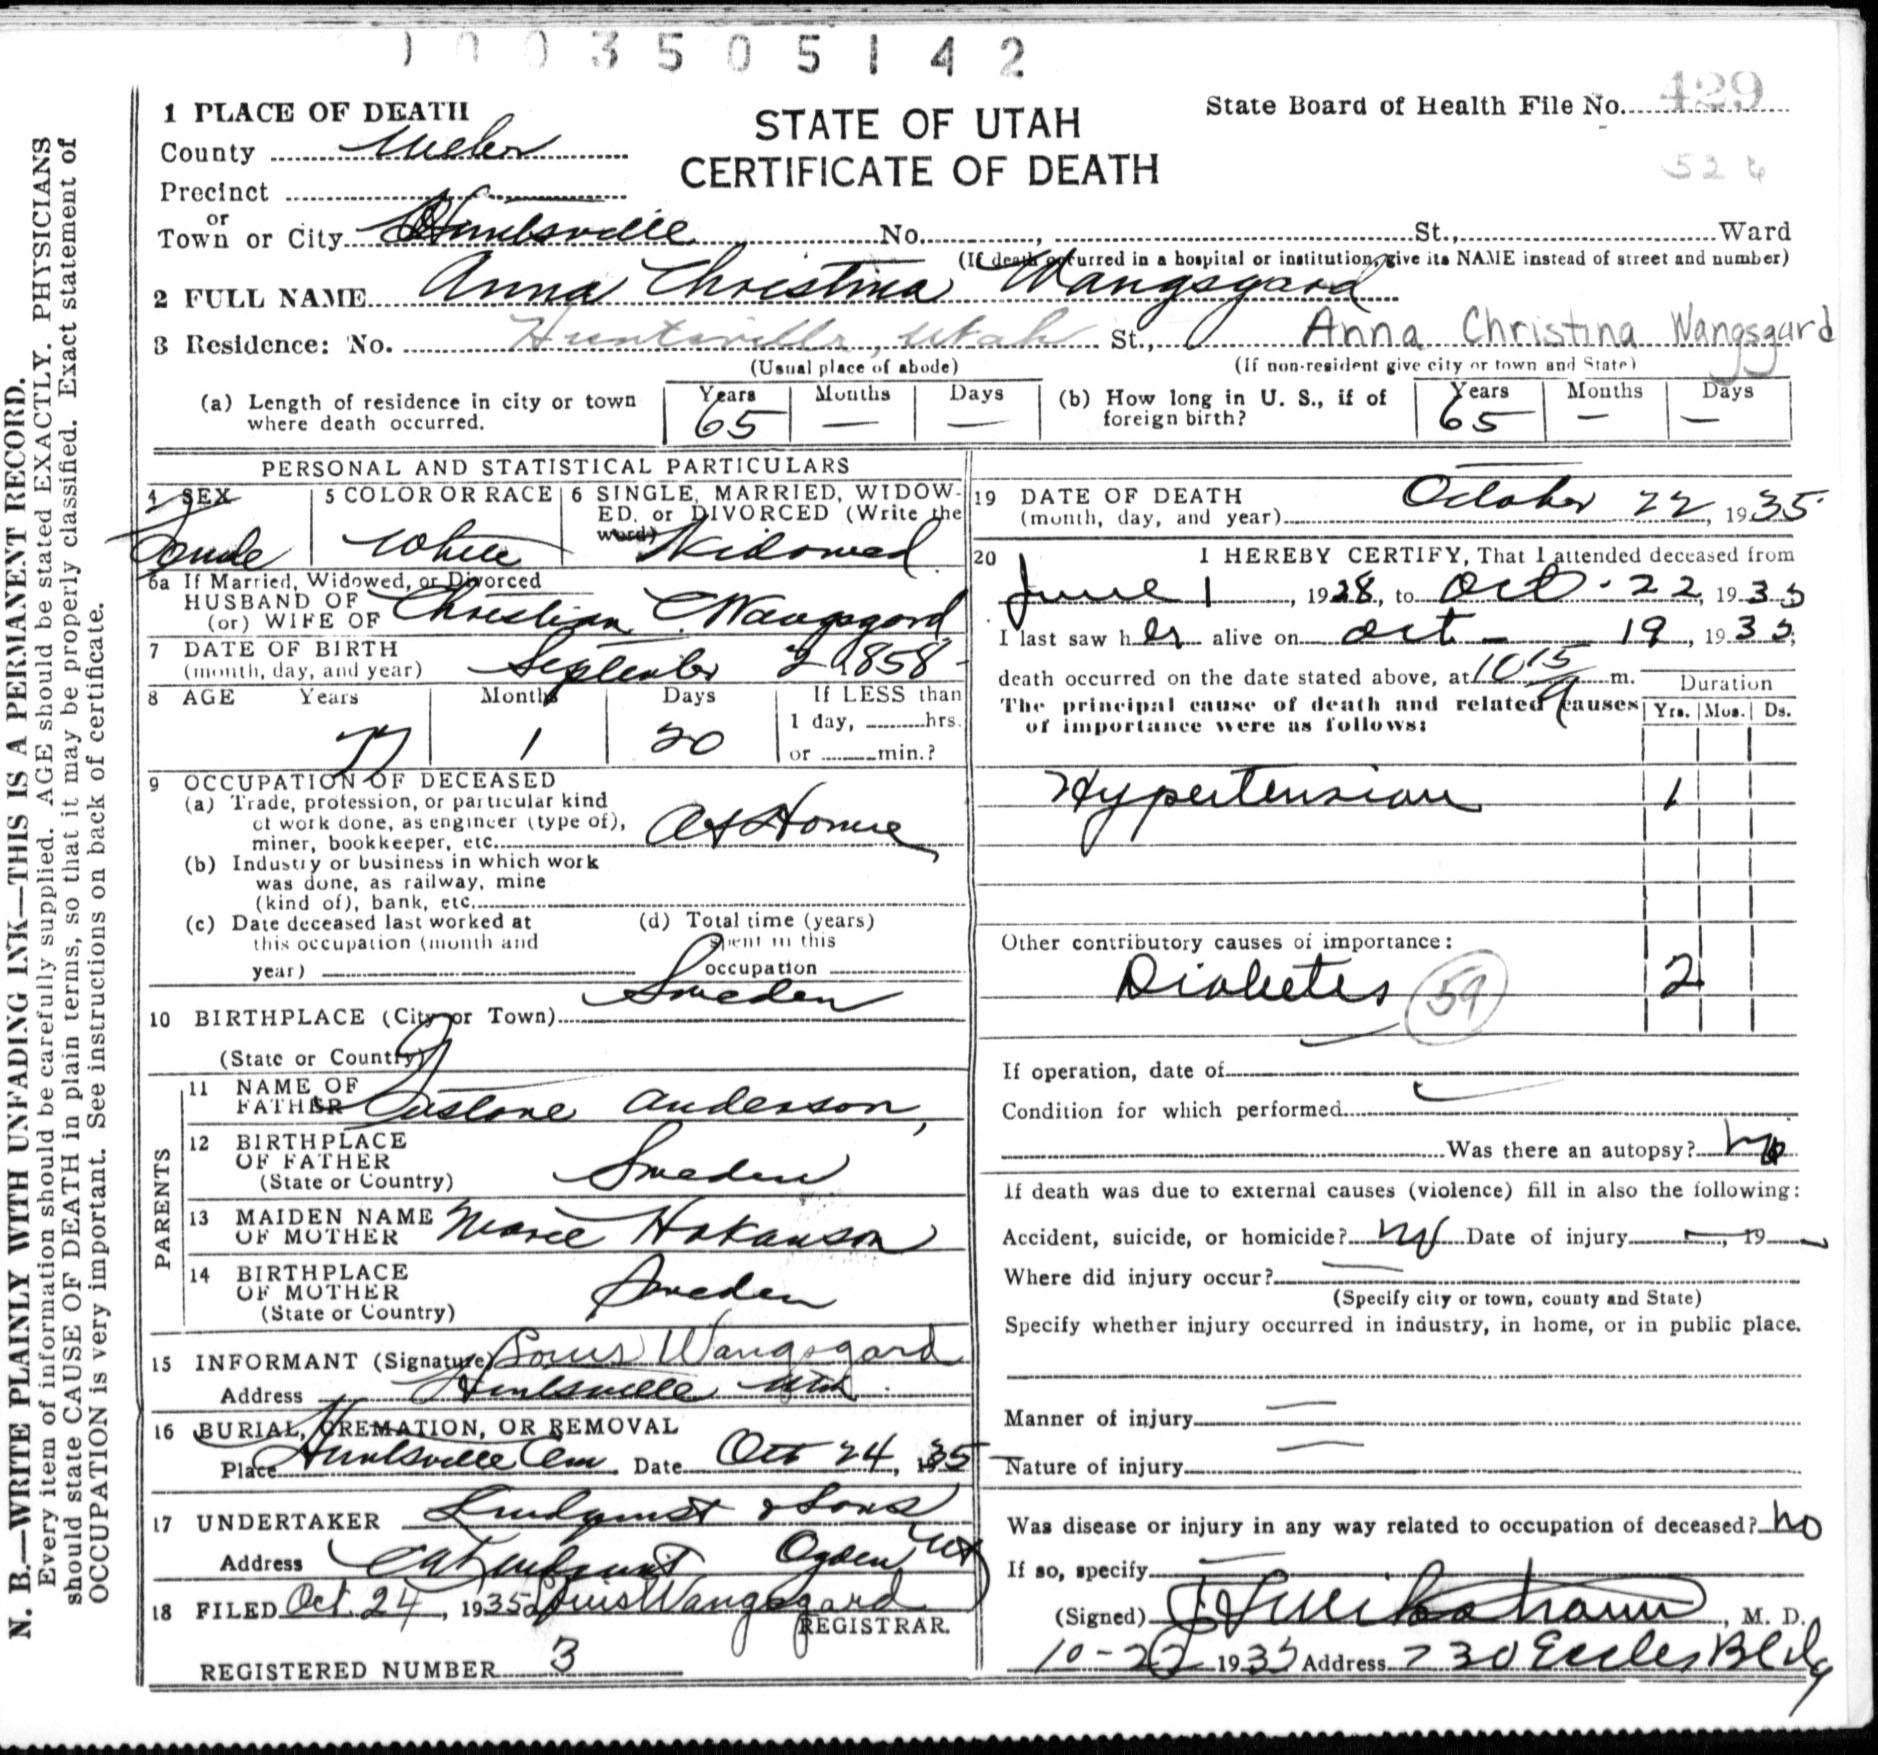 1003505142
1 PLACE OF DEATH
STATE OF UTAH
CERTIFICATE OF DEATH
State Board of Health File No. 429
526
County Weber
Precinct
or
Town or City Huntsville No. , St., Ward
(If death occurred in a hospital or institution, give its NAME instead of street and number)
2 FULL NAME Anna Christina Wangsgard
3 Residence: No. Huntsville, Utah St., Anna Christina Wangsgard
(Usual place of abode) (If non-resident give city or town and State)
(a) Length of residence in city or town where death occurred. Years 65 Months — Days —
(b) How long in U. S., if of foreign birth? Years 65 Months — Days —
PERSONAL AND STATISTICAL PARTICULARS
4 SEX
Female
5 COLOR OR RACE
White
6 SINGLE, MARRIED, WIDOW-
ED, or DIVORCED (Write the
word) Widowed
6a If Married, Widowed, or Divorced
HUSBAND OF
(or) WIFE OF Christian Wangsgard
7 DATE OF BIRTH
(month, day, and year) September 2 1858
8 AGE Years Months Days If LESS than
1 day, hrs.
77 1 20 or min.?
9 OCCUPATION OF DECEASED
(a) Trade, profession, or particular kind
of work done, as engineer (type of),
miner, bookkeeper, etc. At Home
(b) Industry or business in which work
was done, as railway, mine
(kind of), bank, etc.
(c) Date deceased last worked at
this occupation (month and
year)
(d) Total time (years)
spent in this
occupation
10 BIRTHPLACE (City or Town) Sweden
(State or Country)
PARENTS
11 NAME OF
FATHER Anderson
12 BIRTHPLACE
OF FATHER
(State or Country) Sweden
13 MAIDEN NAME
OF MOTHER Marie Hokanson
14 BIRTHPLACE
OF MOTHER
(State or Country) Sweden
15 INFORMANT (Signature) Louis Wangsgard
Address Huntsville Utah
16 BURIAL, CREMATION, OR REMOVAL
Place Huntsville Cem. Date Oct 24, 1935
17 UNDERTAKER Lindquist & Sons
Address Ogden Ut
18 FILED Oct. 24, 1935 Louis Wangsgard
REGISTRAR.
REGISTERED NUMBER 3
19 DATE OF DEATH
(month, day, and year) October 22, 1935
20 I HEREBY CERTIFY, That I attended deceased from
June 1, 1928, to Oct. 22, 1935
I last saw her alive on Oct - 19, 1935,
death occurred on the date stated above, at 10 15 a m.
The principal cause of death and related causes
of importance were as follows:
Duration
Yrs. Mos. Ds.
Hypertension 1
Other contributory causes of importance:
Diabetes 59 2
If operation, date of
Condition for which performed
Was there an autopsy? No
If death was due to external causes (violence) fill in also the following:
Accident, suicide, or homicide? No Date of injury , 19
Where did injury occur?
(Specify city or town, county and State)
Specify whether injury occurred in industry, in home, or in public place.
Manner of injury
Nature of injury
Was disease or injury in any way related to occupation of deceased? no
If so, specify
(Signed) , M. D.
10-22 1935 Address 730 Eccles Bldg
N. B.—WRITE PLAINLY WITH UNFADING INK—THIS IS A PERMANENT RECORD.
Every item of information should be carefully supplied. AGE should be stated EXACTLY. PHYSICIANS
should state CAUSE OF DEATH in plain terms, so that it may be properly classified. Exact statement of
OCCUPATION is very important. See instructions on back of certificate.